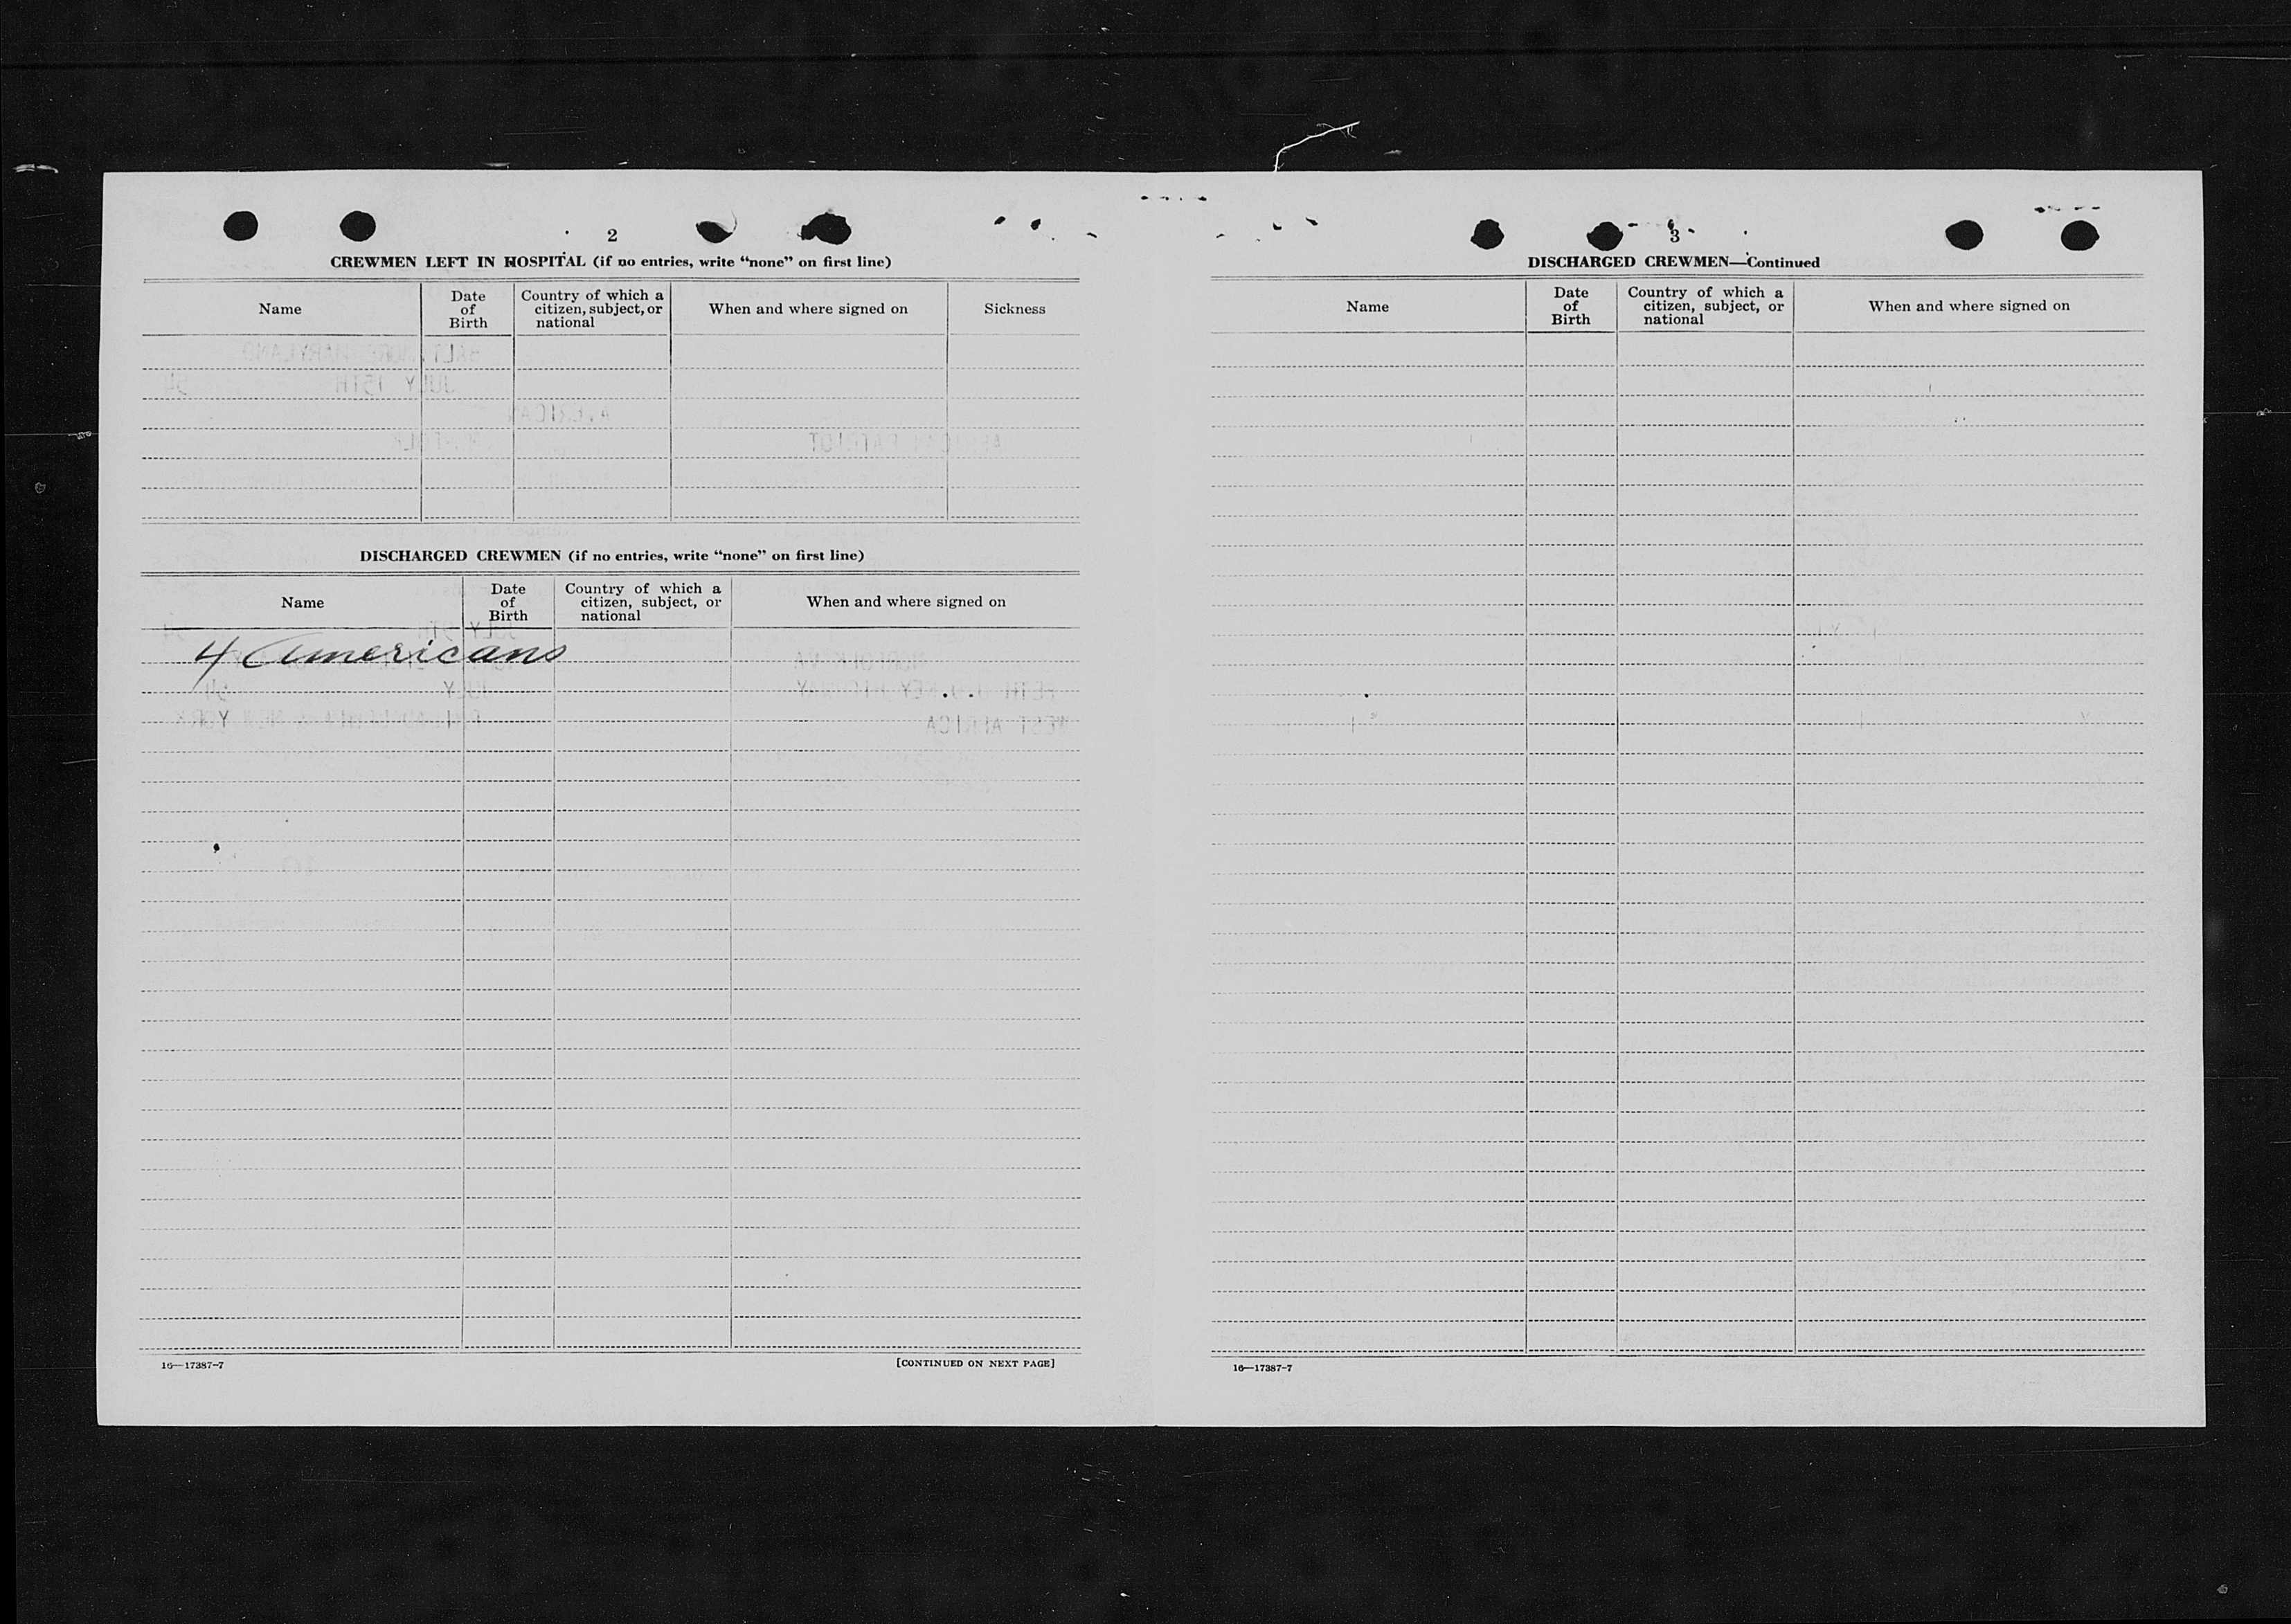 2
CREWMEN LEFT IN HOSPITAL (if no entries, write "none" on first line)
Name
Date of Birth
Country of which a citizen, subject, or national
When and where signed on
Sickness
DISCHARGED CREWMEN (if no entries, write "none" on first line)
Name
Date of Birth
Country of which a citizen, subject, or national
When and where signed on
4 Americans
16—17387-7
[CONTINUED ON NEXT PAGE]
3
DISCHARGED CREWMEN—Continued
Name
Date of Birth
Country of which a citizen, subject, or national
When and where signed on
16—17387-7